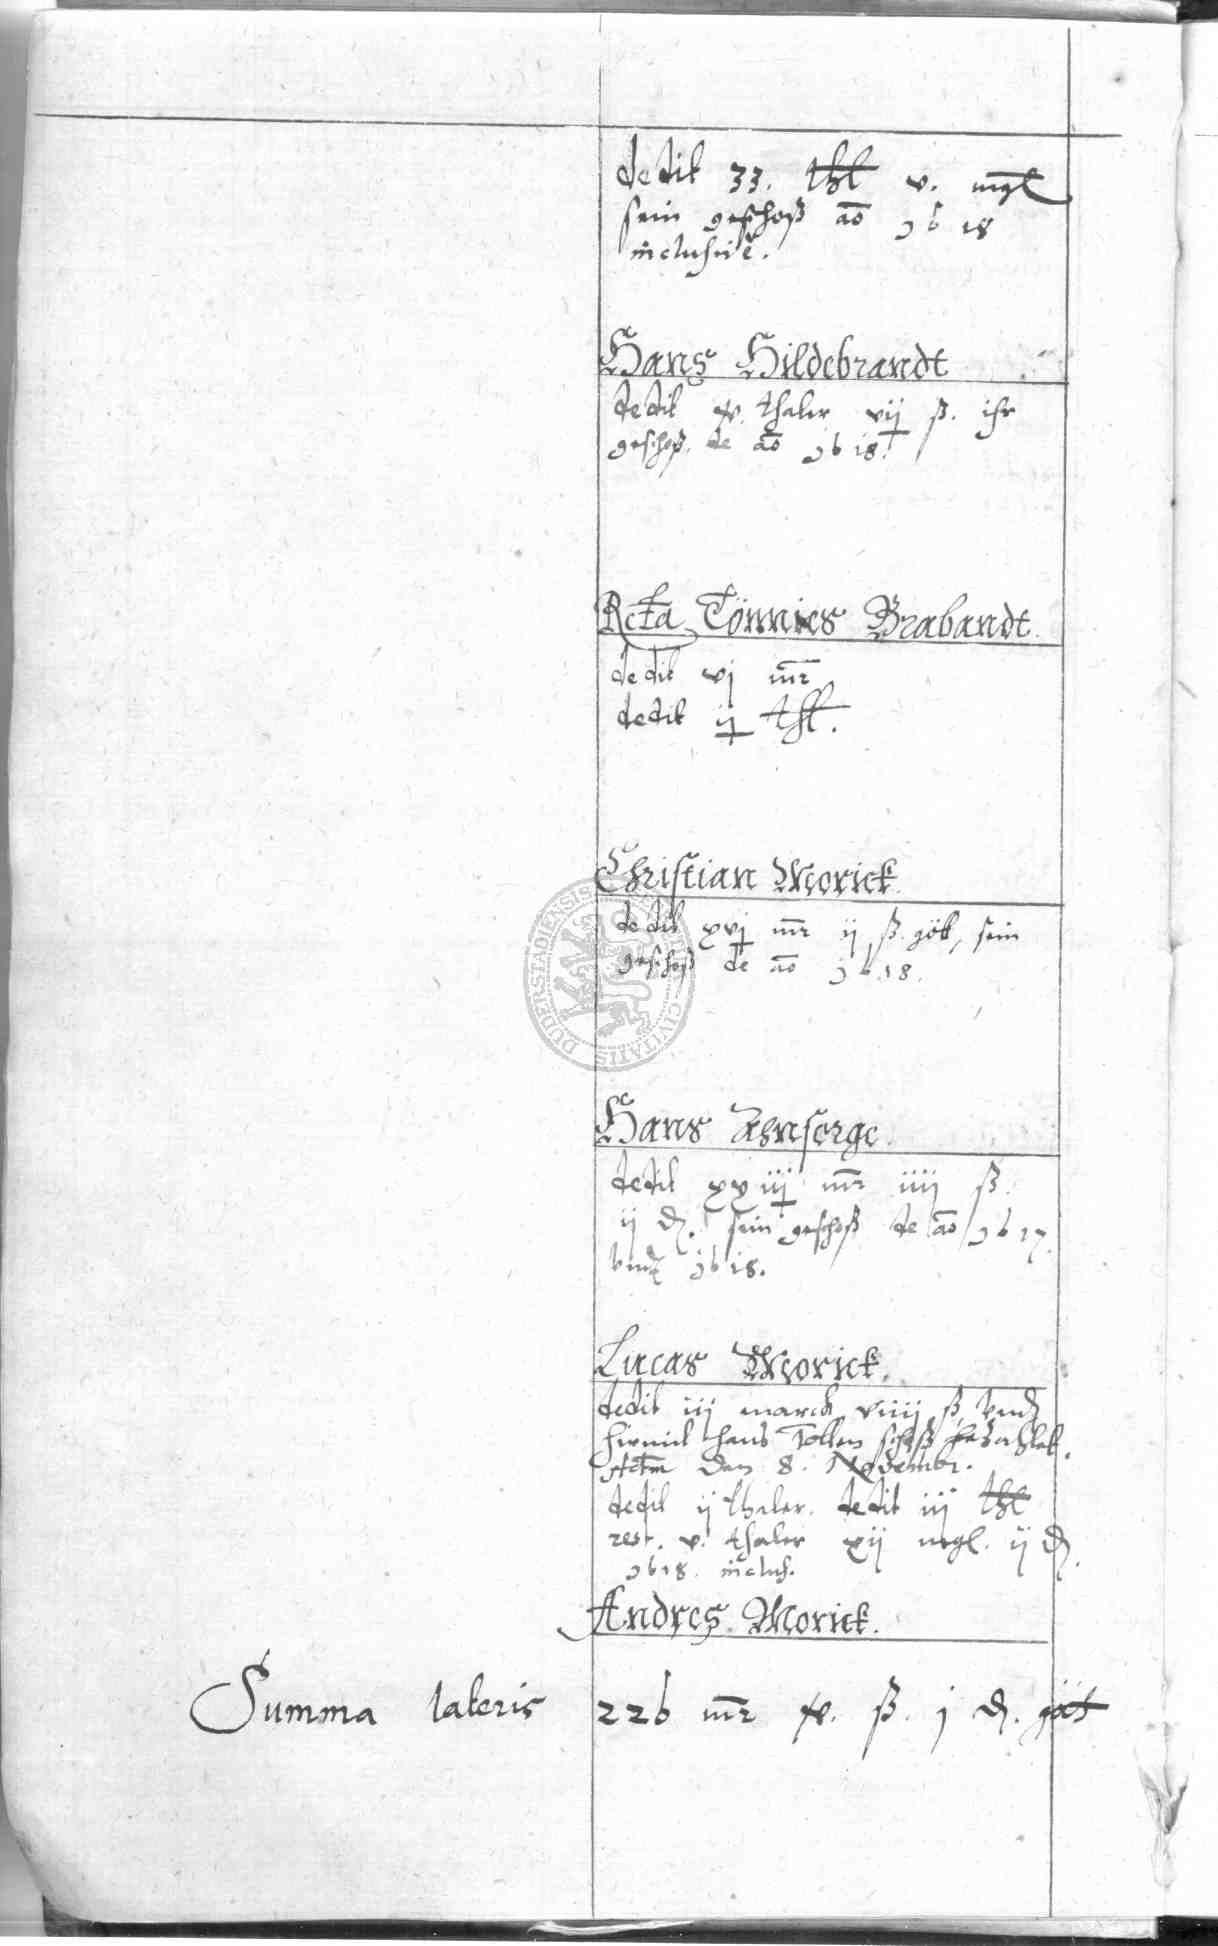 dedit 33. thl v. mgl
sein geschoß ao 1618
inclusivè.
Hans Hildebrandt
dedit x. thaler vij ß. ihr
geschoß. de ao 1618.
Rcta Tönnies Brabandt
dedit vj mr
dedit ij thl.
Christian Morick
dedit xvj mr ij ß. göt, sein
geschoß de ao 1618.
Hans Ahnsorge
dedit xxiij mr iiij ß.
ij d. sein geschoß de ao 1617
vnd 1618.
Lucas Morick.
dedit iij marck viiij ß, vnd
hiemit hans Tollen schoß bezahlet.
Actm den 8. Novembr.
dedit ij thaler. dedit iij thl
rest. v. thaler xij mgl. ij d.
1618. inclus.
Andres Morick.
Summa lateris 226 mr x. ß. j d. göt
DUDERSTADIENSIS CIVITATIS